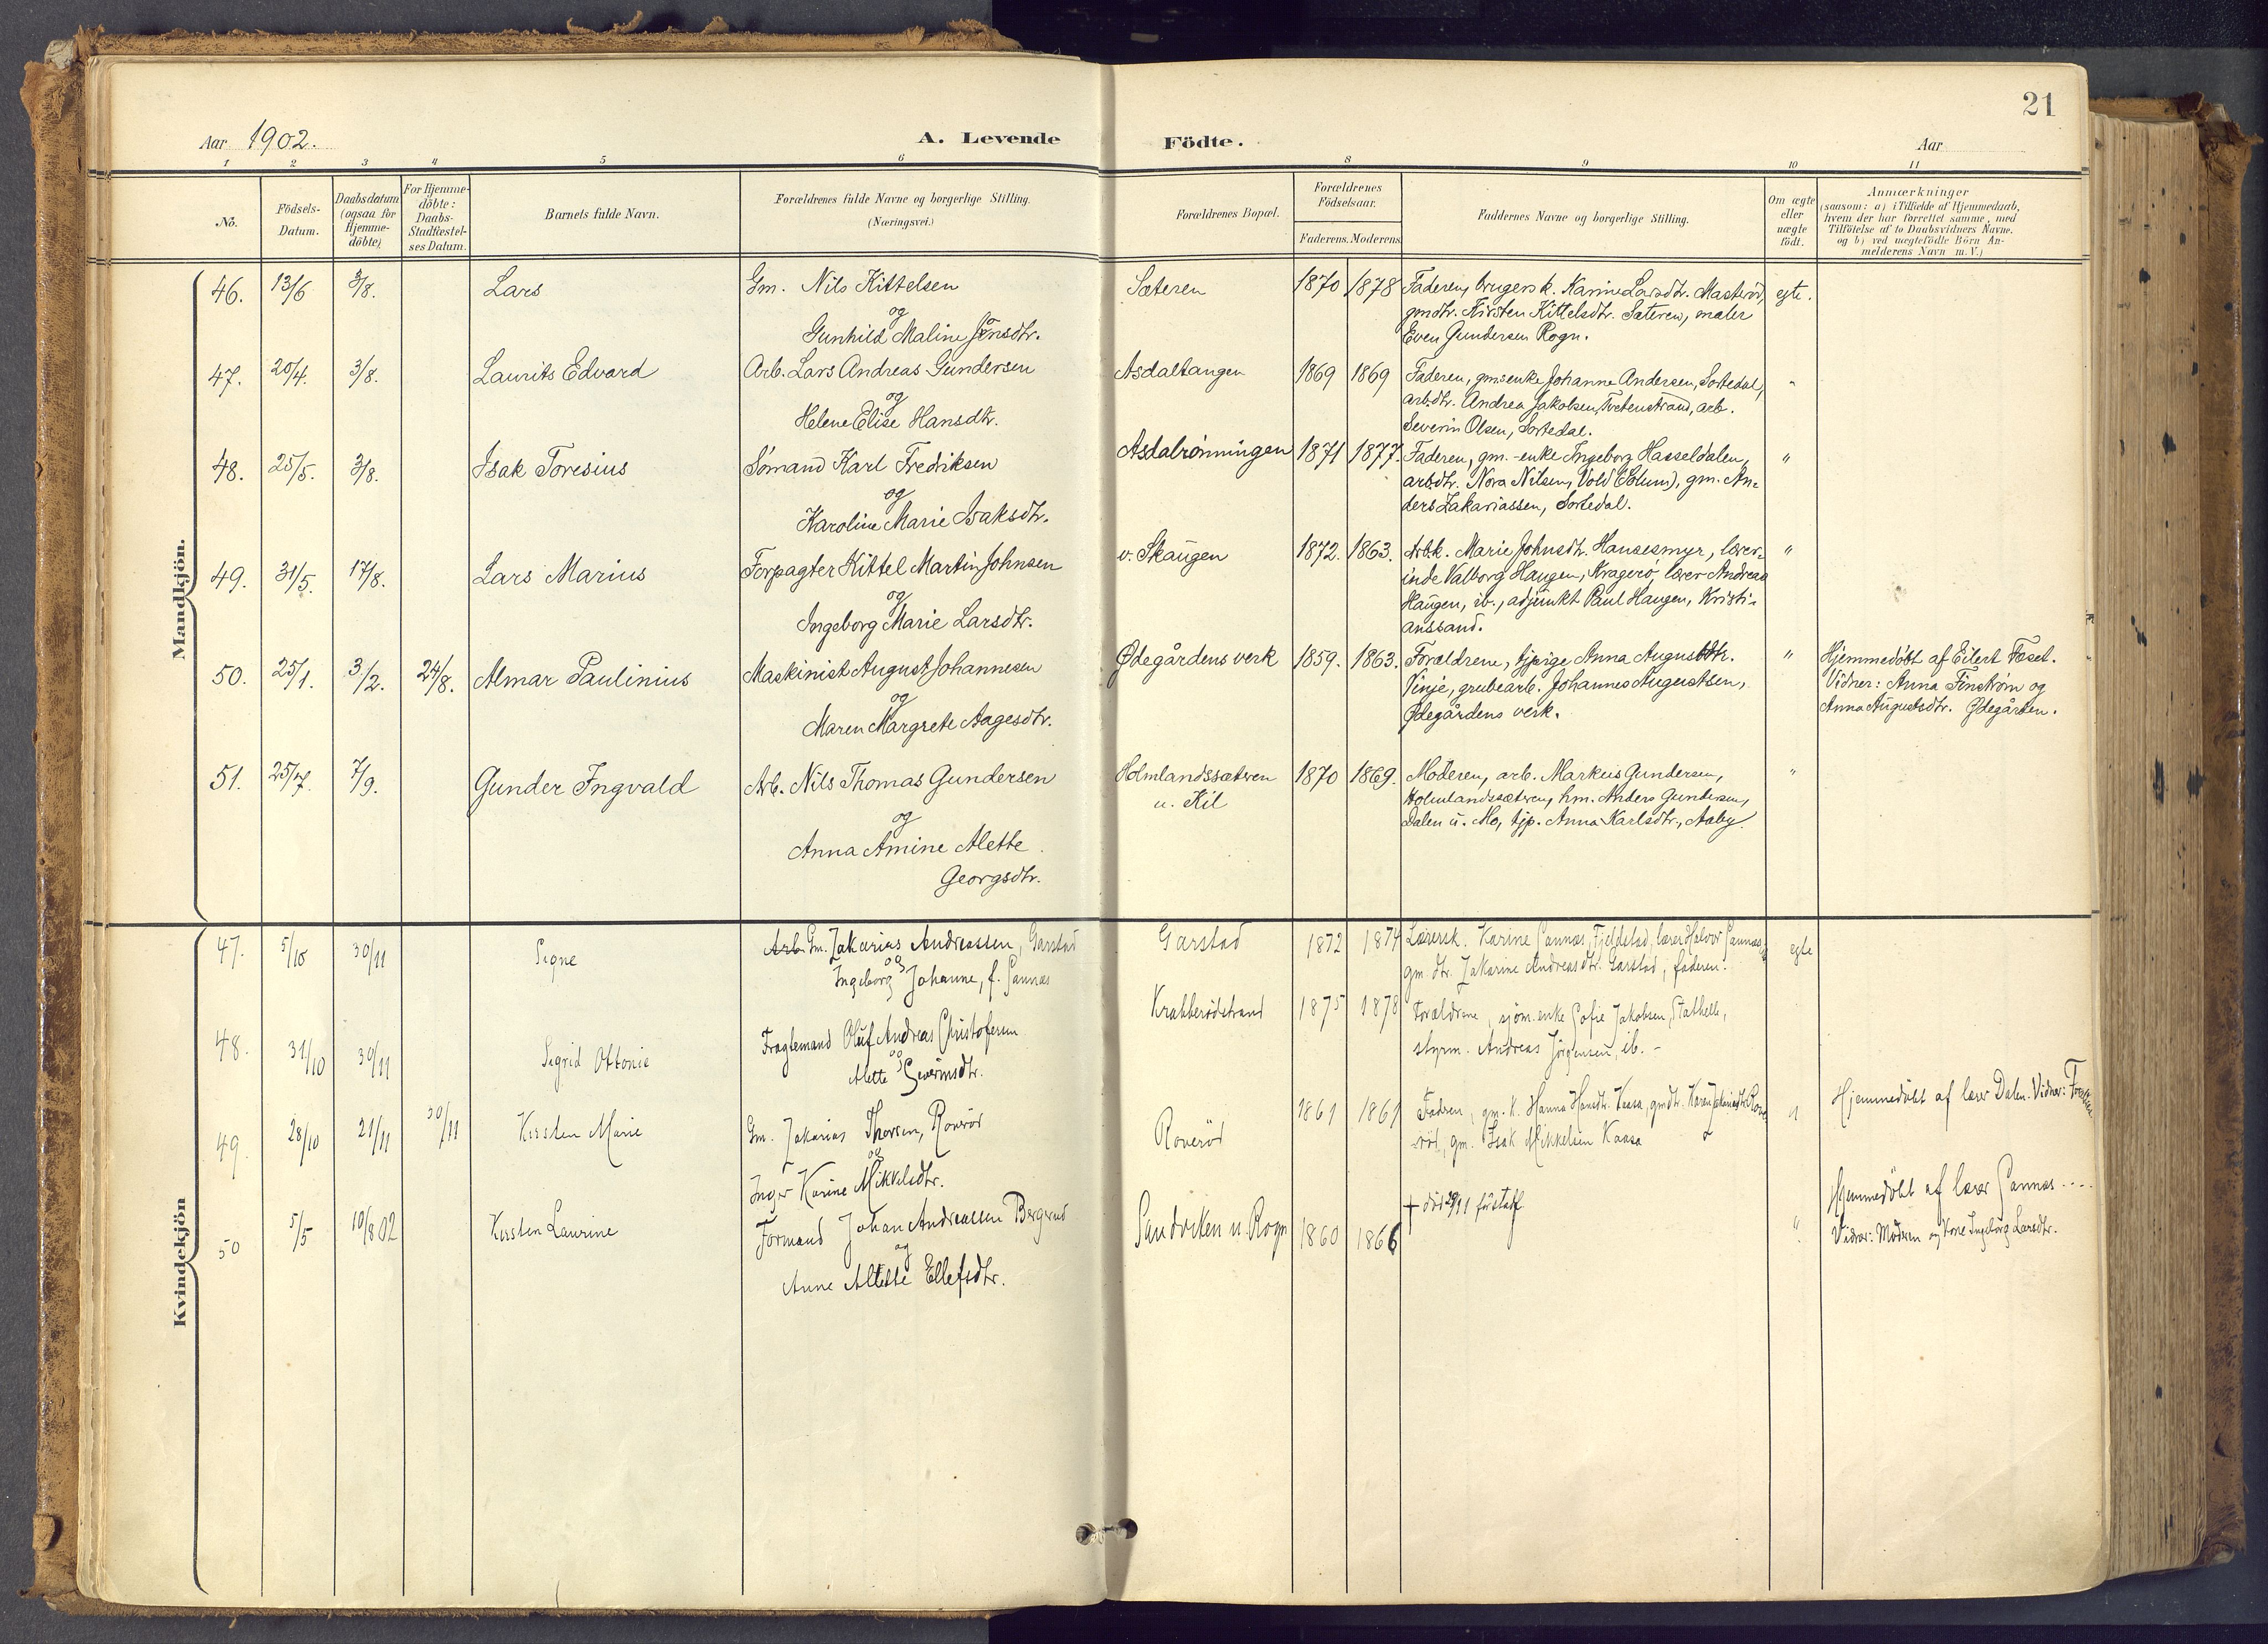 21
Aar 1902. A. Levende Födte. Aar
1 2 3 4 5 6 8 9 10 11
No.
Födsels-
Datum.
Daabsdatum
(ogsaa for
Hjemme-
döbte)
For Hjemme-
döbte:
Daabs-
Stadfæstel-
ses Datum.
Barnets fulde Navn.
Forældrenes fulde Navne og borgerlige Stilling.
(Næringsvei.)
Forældrenes Bopæl.
Forældrenes
Födselsaar.
Faderens. Moderens.
Faddernes Navne og borgerlige Stilling.
Om ægte
eller
uægte
födt.
Anmærkninger
(saasom: a) i Tilfælde af Hjemmedaab,
hvem der har forrettet samme, med
Tilföielse af to Daabsvidners Navne.
og b) ved uægtefödte Börn An-
melderens Navn m. V.)
Mandkjön.
46. 13/6 3/8. Lars
Gm. Nils Kittelsen
og
Gunhild Maline Jensdtr.
Sæteren 1870 1878
Faderen, brugersk. Karine Larsdtr. Masterød,
gmdtr. Kirsten Kittelsdtr. Sæteren, maler
Even Gundersen Rogn.
egte.
47. 20/4. 3/8. Laurits Edvard
Arb. Lars Andreas Gundersen
og
Helene Elise Hansdtr.
Asdaltangen 1869 1869
Faderen, gmsenke Johanne Andersen, Sortedal,
arbdtr. Andrea Jakobsen, Tvetenstrand, arb.
Severin Olsen, Sortedal.
"
48. 25/5. 3/8. Isak Toresius
Sømand Karl Fredriksen
og
Karoline Marie Isaksdtr.
Asdalrønningen 1871 1877.
Faderen, gm.-enke Ingeborg Hasseldalen,
arbdtr. Nora Nilsen, Vold (Solum), gm. An-
ders Zakariassen, Sortedal.
"
49. 31/5. 17/8. Lars Marius
Forpagter Kittel Martin Johnsen
og
Ingeborg Marie Larsdtr.
v. Skaugen 1872. 1863.
Arbk. Marie Johnsdtr. Hansesmyr, lærer-
inde Valborg Haugen, Kragerø, lærer Andreas
Haugen, ib., adjunkt Paul Haugen, Kristi-
anssand.
"
50. 25/1. 3/2. 24/8. Almar Paulinius
Maskinist August Johannesen
og
Maren Margrete Aagesdtr.
Ødegårdens verk 1859. 1863.
Forældrene, tjpige Anna Augustdtr.
Vinje, grubearb. Johannes Augustsen,
Ødegårdens verk.
"
Hjemmedöbt af Eilert Foset.
Vidner: Anna Finstrøm og
Anna Augustsdtr. Ødegården.
51. 25/7. 7/9. Gunder Ingvald
Arb. Nils Thomas Gundersen
og
Anna Amine Alette
Georgsdtr.
Holmlandssætren
u. Kil
1870 1869.
Moderen, arb. Markus Gundersen,
Holmlandssætren, hm. Anders Gundersen,
Dalen u. Mo, tjp. Anna Karlsdtr., Aaby.
"
Kvindekjön
47. 5/10 30/11 Signe
Arb. Gm. Zakarias Andreassen, Garstad
og
Ingeborg Johanne, f. Sannæs
Garstad 1872 1874
Lærersk. Karine Sannæs, Fjeldstad, lærer Halvor Sannæs,
gm. dtr. Zakarine Andreasdtr. Garstad, faderen.
egte
48. 31/10 30/11 Sigrid Ottonie
Fragtemand Oluf Andreas Christofersen
og
Alette Severinsdtr.
Krabberødstrand 1875 1878
Forældrene, sjöm.enke Sofie Jakobsen, Stathelle,
styrm. Andreas Jörgensen, ib. -
49. 28/10 21/11 30/11 Kirsten Marie
Gm. Zakarias Thorsen, Roverød
og
Inger Karine Mikkelsdtr.
Roverød 1861 1861
Fadren, gm. k. Hanna Hansdtr. Kaasa, gmdtr. Karen Zakariasdtr Rove
rød, gm. Isak Mikkelsen Kaasa
"
Hjemmedöbt af lærer Dalen. Vidner:
50 5/5 10/8 02 Kirsten Laurine
Formand Johan Andreassen Bergerud
og
Anne Alette Ellefsdtr.
Sandviken u. Rogn 1860 1866
† död 29/11 før stadf.
"
Hjemmedöbt af lærer Sannæs....
Vidner: Modren og Kone Ingeborg Larsdtr.